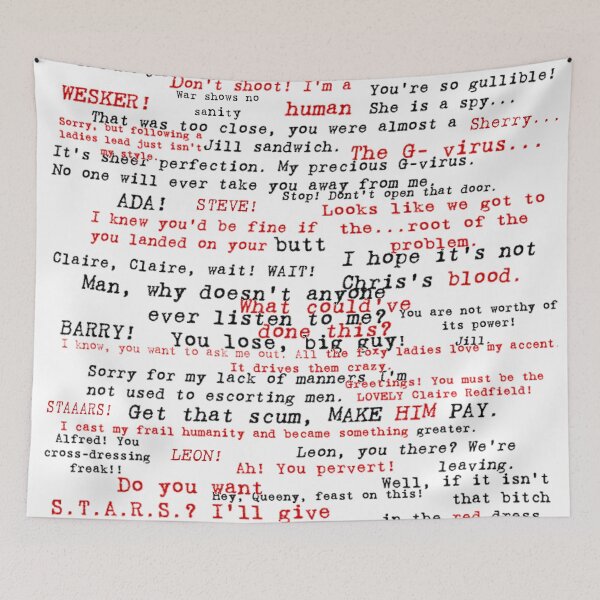 Don't shoot! I'm a
human
You're so gullible!
She is a spy...
WESKER!
War shows no
sanity
That was too close, you were almost a
Jill sandwich.
Sherry...
Sorry, but following a
ladies lead just isn't
my style.
The G- virus...
It's sheer perfection. My precious G-virus.
No one will ever take you away from me.
Stop! Dont't open that door.
ADA!
STEVE!
Looks like we got to
the...root of the
problem.
I knew you'd be fine if
you landed on your butt
I hope it's not
Chris's blood.
Claire, Claire, wait! WAIT!
Man, why doesn't anyone
ever listen to me?
What could've
done this?
You are not worthy of
its power!
BARRY!
You lose, big guy!
Jill.
I know, you want to ask me out. All the foxy ladies love my accent.
It drives them crazy.
Sorry for my lack of manners I'm
not used to escorting men.
Greetings! You must be the
LOVELY Claire Redfield!
STAAARS!
Get that scum, MAKE HIM PAY.
I cast my frail humanity and became something greater.
Alfred! You
cross-dressing
freak!!
LEON!
Leon, you there? We're
leaving.
Ah! You pervert!
Do you want
S.T.A.R.S.? I'll give
Hey, Queeny, feast on this!
Well, if it isn't
that bitch
in the red dress